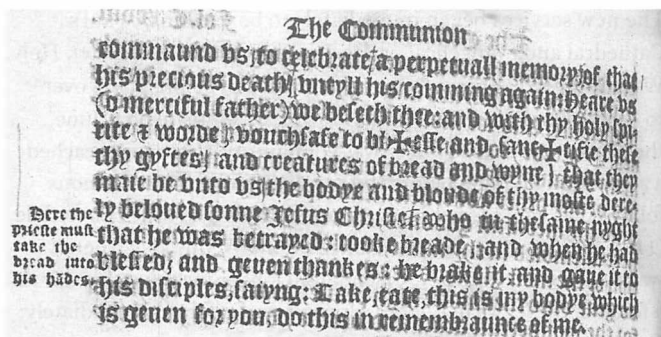 The Communion
commaund vs, to celebrate a perpetuall memory, of that
his precious death, vntyll his comming again: Heare vs
(o merciful father) we besech thee: and with thy holy spi-
rite & worde, vouchsafe to bl✠esse and sanc✠tifie these
thy gyftes, and creatures of bread and wyne, that they
maie be vnto vs the bodye and bloude of thy moste dere-
ly beloued sonne Jesus Christe. who in the same nyght
Here the
prieste must
take the
bread into
his hādes.
that he was betrayed: tooke breade, and when he had
blessed, and geuen thankes: he brake it, and gaue it to
his disciples, saiyng: Take, eate, this is my bodye which
is geuen for you, do this in remembraunce of me.